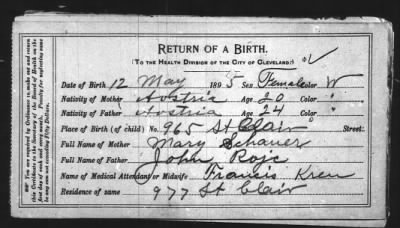 RETURN OF A BIRTH.
(TO THE HEALTH DIVISION OF THE CITY OF CLEVELAND.)
Date of Birth 12 May 1895 Sex Female Color W
Nativity of Mother Avstria Age 20 Color "
Nativity of Father Avstria Age 24 " "
Place of Birth (of child) No. 965 St Clair Street:
Full Name of Mother Mary Schauer
Full Name of Father John Rojc
Name of Medical Attendant or Midwife Francis Kren
Residence of same 977 St Clair
You are required by Ordinance to make out and return
this Certificate to the Secretary of the Board of Health on the
first day of each and every month. Penalty for neglecting same
not exceeding Fifty Dollars.